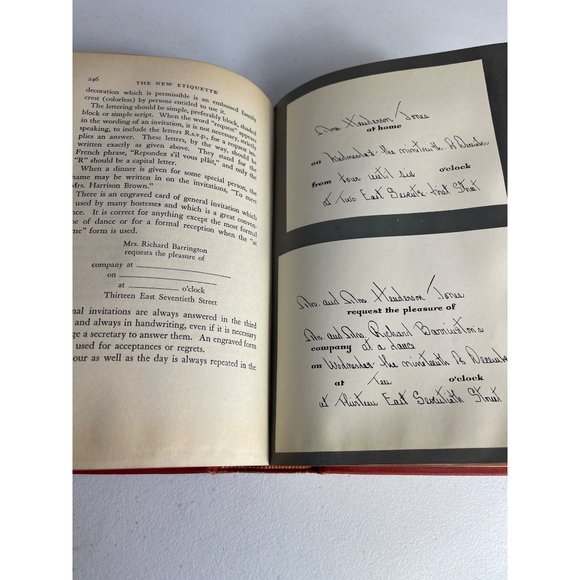 246 THE NEW ETIQUETTE
decoration which is permissible is an embossed family
crest (colorless) by persons entitled to use it.
The lettering should be simple, preferably block, shaded
block or simple script. When the word "request" appears
in the wording of an invitation, it is not necessary, strictly
speaking, to include the letters R.s.v.p., which of course
plies an answer. These letters, by the way, should be
written exactly as given above. They stand for the
French phrase, "Repondez s'il vous plâit," and only the
"R" should be a capital letter.
When a dinner is given for some special person, the
name may be written in on the invitations, "To meet
Mrs. Harrison Brown."
There is an engraved card of general invitation which
used by many hostesses and which is a great conven-
It is correct for anything except the most formal
pe of dance or for a formal reception when the "at
me" form is used.
Mrs. Richard Barrington
requests the pleasure of
company at
on
at o'clock
Thirteen East Seventieth Street
nal invitations are always answered in the third
and always in handwriting, even if it is necessary
ge a secretary to answer them. An engraved form
used for acceptances or regrets.
our as well as the day is always repeated in the
Mrs Henderson Jones
at home
on Wednesday the nineteenth of December
from four until six o'clock
at Two East Seventy first Street
Mr. and Mrs Henderson Jones
request the pleasure of
Mr. and Mrs. Richard Barrington's
company at a dance
on Wednesday the nineteenth of December
at Ten o'clock
at Thirteen East Seventieth Street